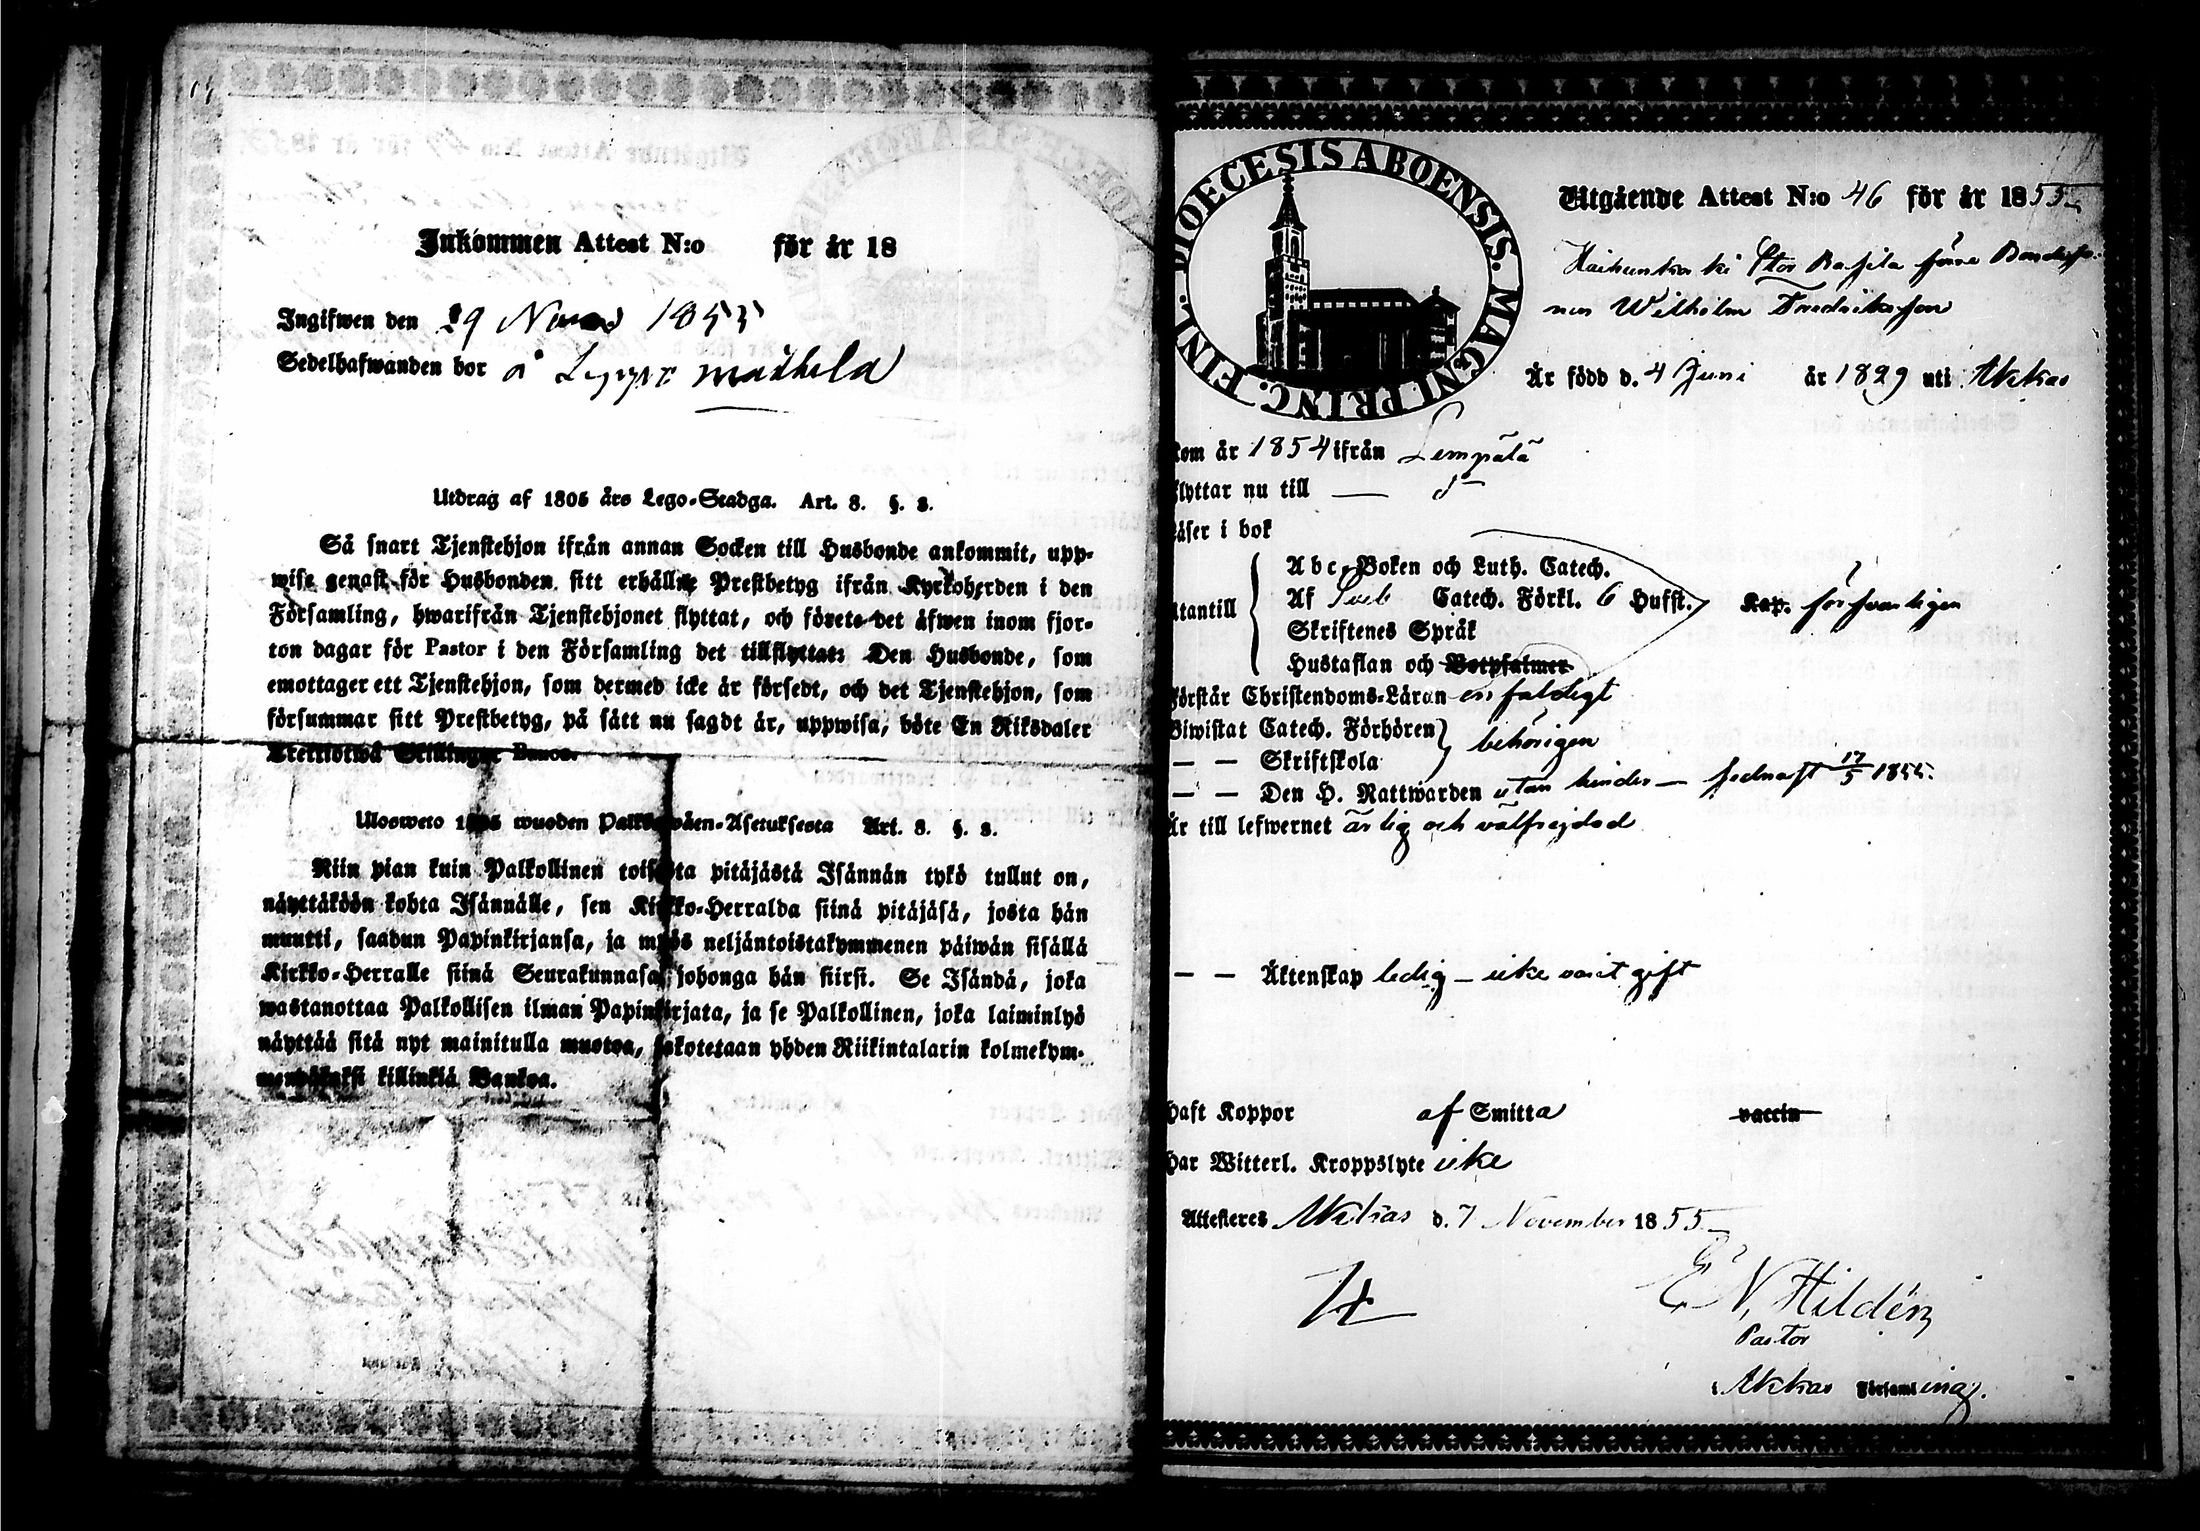 Inkommen Attest N:o för år 18
Ingifwen den 29 Nov 1855
Sedelhafwanden bor å
Utdrag af 1805 års Lego-Stadga. Art. 8. §. 8.
Så snart Tjenstehjon ifrån annan Socken till Husbonde ankommit, upp-
wise genast för Husbonden sitt erhållne Prestbetyg ifrån Kyrkoherden i den
Församling, hwarifrån Tjenstehjonet flyttat, och förete det äfwen inom fjor-
ton dagar för Pastor i den Församling det tillflyttat: Den Husbonde, som
emottager ett Tjenstehjon, som dermed icke är försedt, och det Tjenstehjon, som
försummar sitt Prestbetyg, på sätt nu sagdt är, uppwisa, böte En Riksdaler
Trettiotwå Skillingar Banco.
Ulosweto 1805 wuoden Palkowäen-Asetuksesta Art. 8. §. 8.
Niin pian kuin Palkollinen toisesta pitäjästä Isännän tykö tullut on,
näyttäköön kohta Isännälle, sen Kirkko-Herralda siinä pitäjäsä, josta hän
muutti, saadun Papinkirjansa, ja myös neljäntoistakymmenen päiwän sisällä
Kirkko-Herralle siinä Seurakunnasa johonga hän siirsi. Se Isändä, joka
wastanottaa Palkollisen ilman Papinkirjata, ja se Palkollinen, joka laiminlyö
näyttää sitä nyt mainitulla muotoa, sakotetaan yhden Riikintalarin kolmekym-
mentäkaksi killinkiä Bankoa.
DIOECESIS ABOENSIS. MAGNI PRINC. FINL.
Utgående Attest N:o 46 för år 1855
Stor
Wilhelm Fredriksson
Är född d. 4 Juni år 1829 uti Akkas
Kom år 1854 ifrån Lempälä
Flyttar nu till — d°
Läser i bok
Utantill
Abc-Boken och Luth. Catech.
Af Sveb Catech. Förkl. 6 Hufst. Kap. försvarligen
Skriftenes Språk
Hustaflan och Botpsalmer
Förstår Christendoms-Läran enfaldigt
Biwistat Catech. Förhören behörigen
— — Skriftskola
— — Den H. Nattwarden utan hinder — sednast 17/5 1855.
Är till lefwernet ärlig och välfrejdad
— — Äktenskap ledig — icke varit gift
Haft Koppor af Smitta vaccin
Har Witterl. Kroppslyte icke
Attesteres Akkas d. 7 November 1855
E N, Hildén
Pastor
i Akkas Församling.